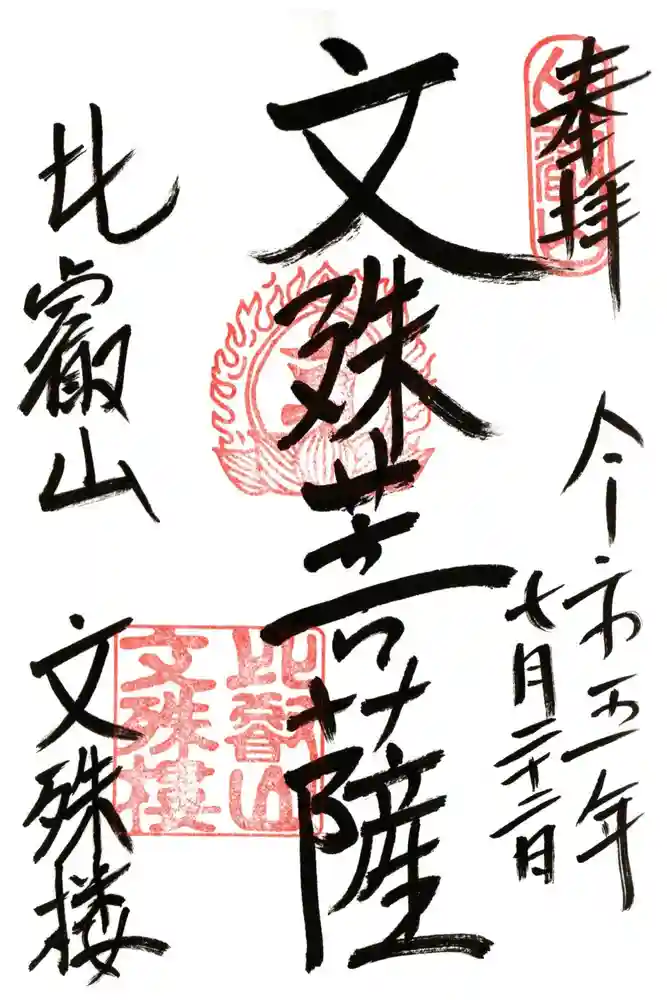 奉拝
比叡山
令和五年
七月二十二日
文殊菩薩
比叡山
文殊樓
比叡山
文殊楼